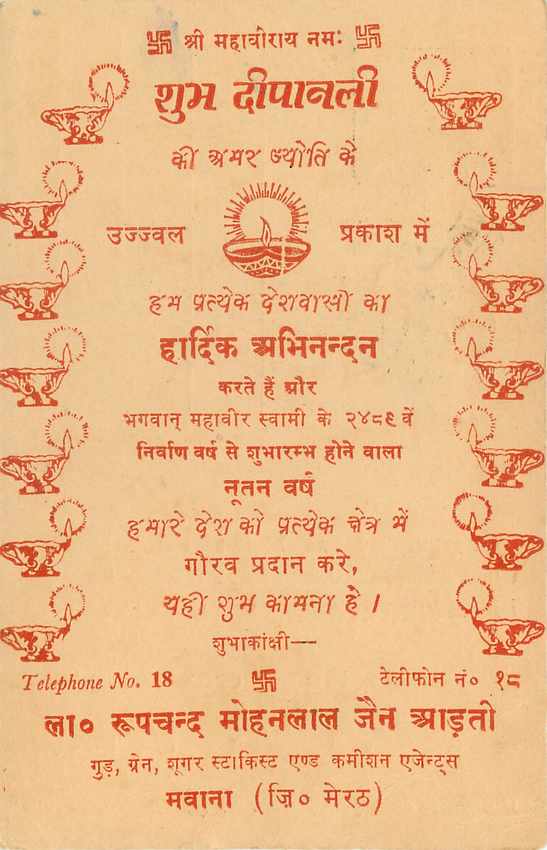 卐 श्री महावीराय नमः 卐
शुभ दीपावली
की अमर ज्योति के
उज्ज्वल प्रकाश में
हम प्रत्येक देशवासी का
हार्दिक अभिनन्दन
करते हैं और
भगवान् महावीर स्वामी के २४८९ वें
निर्वाण वर्ष से शुभारम्भ होने वाला
नूतन वर्ष
हमारे देश को प्रत्येक क्षेत्र में
गौरव प्रदान करे,
यही शुभ कामना है ।
शुभाकांक्षी—
Telephone No. 18 卐 टेलीफोन नं० १८
ला० रूपचन्द मोहनलाल जैन आड़ती
गुड़, ग्रेन, शूगर स्टाकिस्ट एण्ड कमीशन एजेन्ट्स
मवाना (ज़ि० मेरठ)